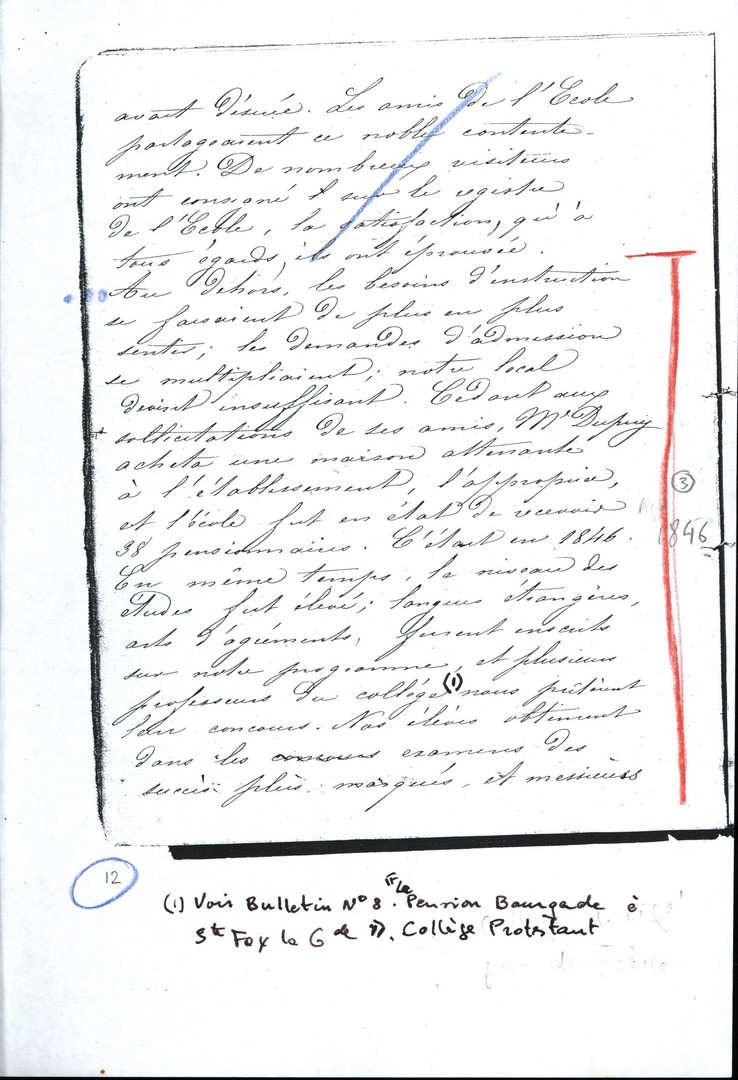 avait désirée. Les amis de l'École
partageaient ce noble contente-
ment. De nombreux visiteurs
ont consigné sur le registre
de l'École, la satisfaction, qu'à
tous égards, ils ont éprouvée.
Au dehors, les besoins d'instruction
se faisaient de plus en plus
sentir; les demandes d'admission
se multipliaient; notre local
devint insuffisant. Cédant aux
sollicitations de ses amis, Mr Dupuy
acheta une maison attenante
à l'établissement, l'appropria,
et l'école fut en état de recevoir
38 pensionnaires. C'était en 1846.
En même temps, le niveau des
études fut élevé; langues étrangères,
arts d'agréments, furent inscrits
sur notre programme, et plusieurs
professeurs du collège (1) nous prêtèrent
leur concours. Nos élèves obtinrent
dans les concours examens des
succès plus marqués, et messieurs
3
1846
12
(1) Voir Bulletin N° 8. "La Pension Bourgade à
Ste Foy la Gde ". Collège Protestant